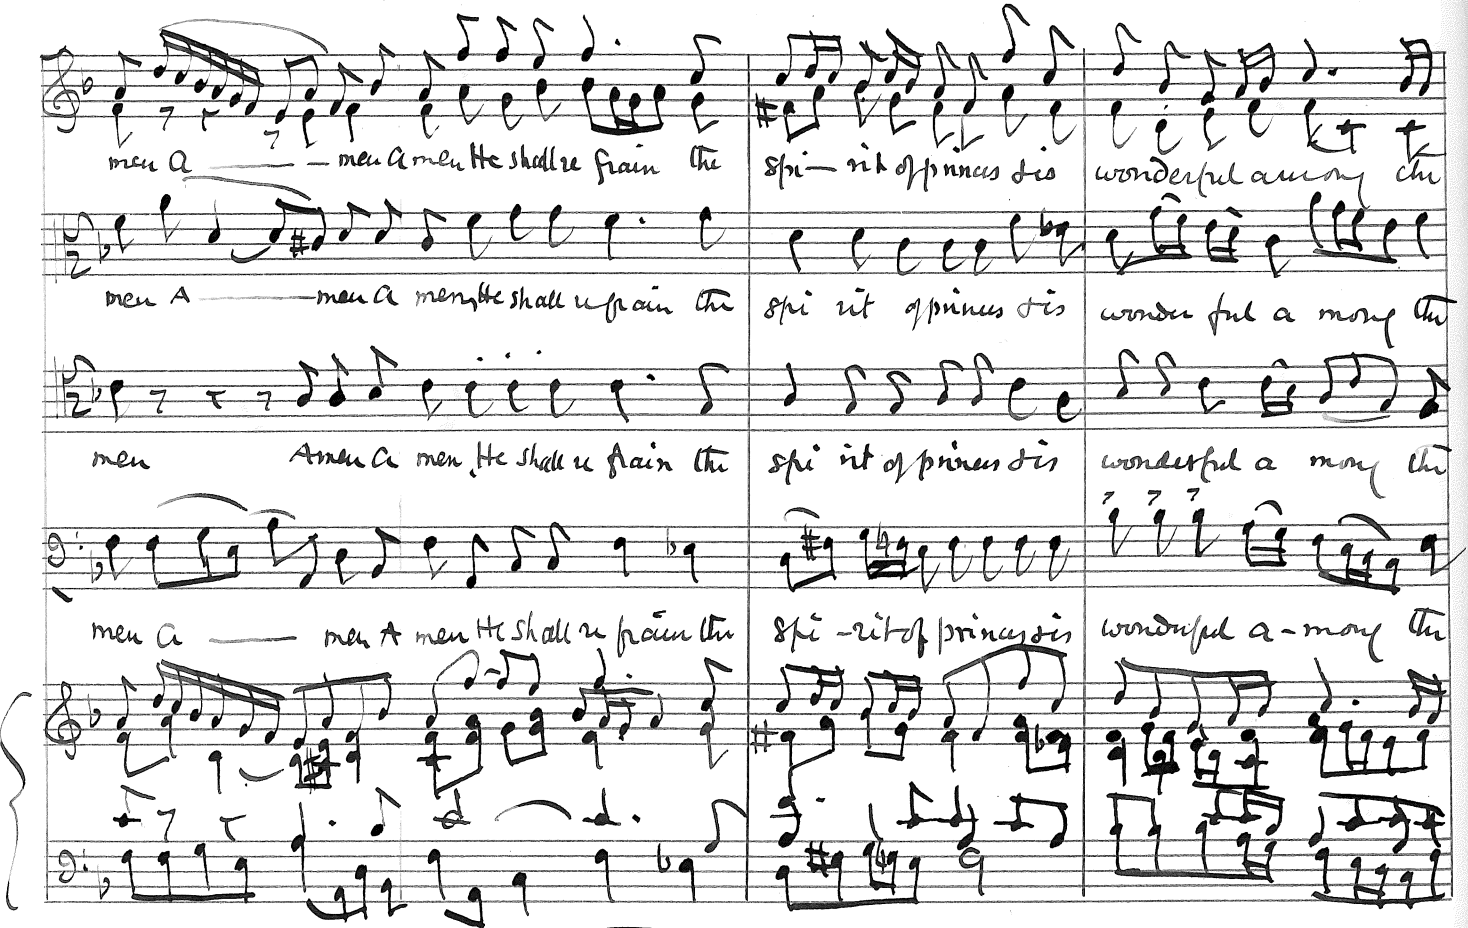 men A — men A men He shall re frain the spi — rit of princes & is wonderful among the
men A — men A men, He shall re frain the spi rit of princes & is wonder ful a mong the
men Amen A men, He shall re frain the spi rit of princes & is wonderful a mong the
men A — men A men He shall re frain the spi - rit of princes & is wonderful a - mong the